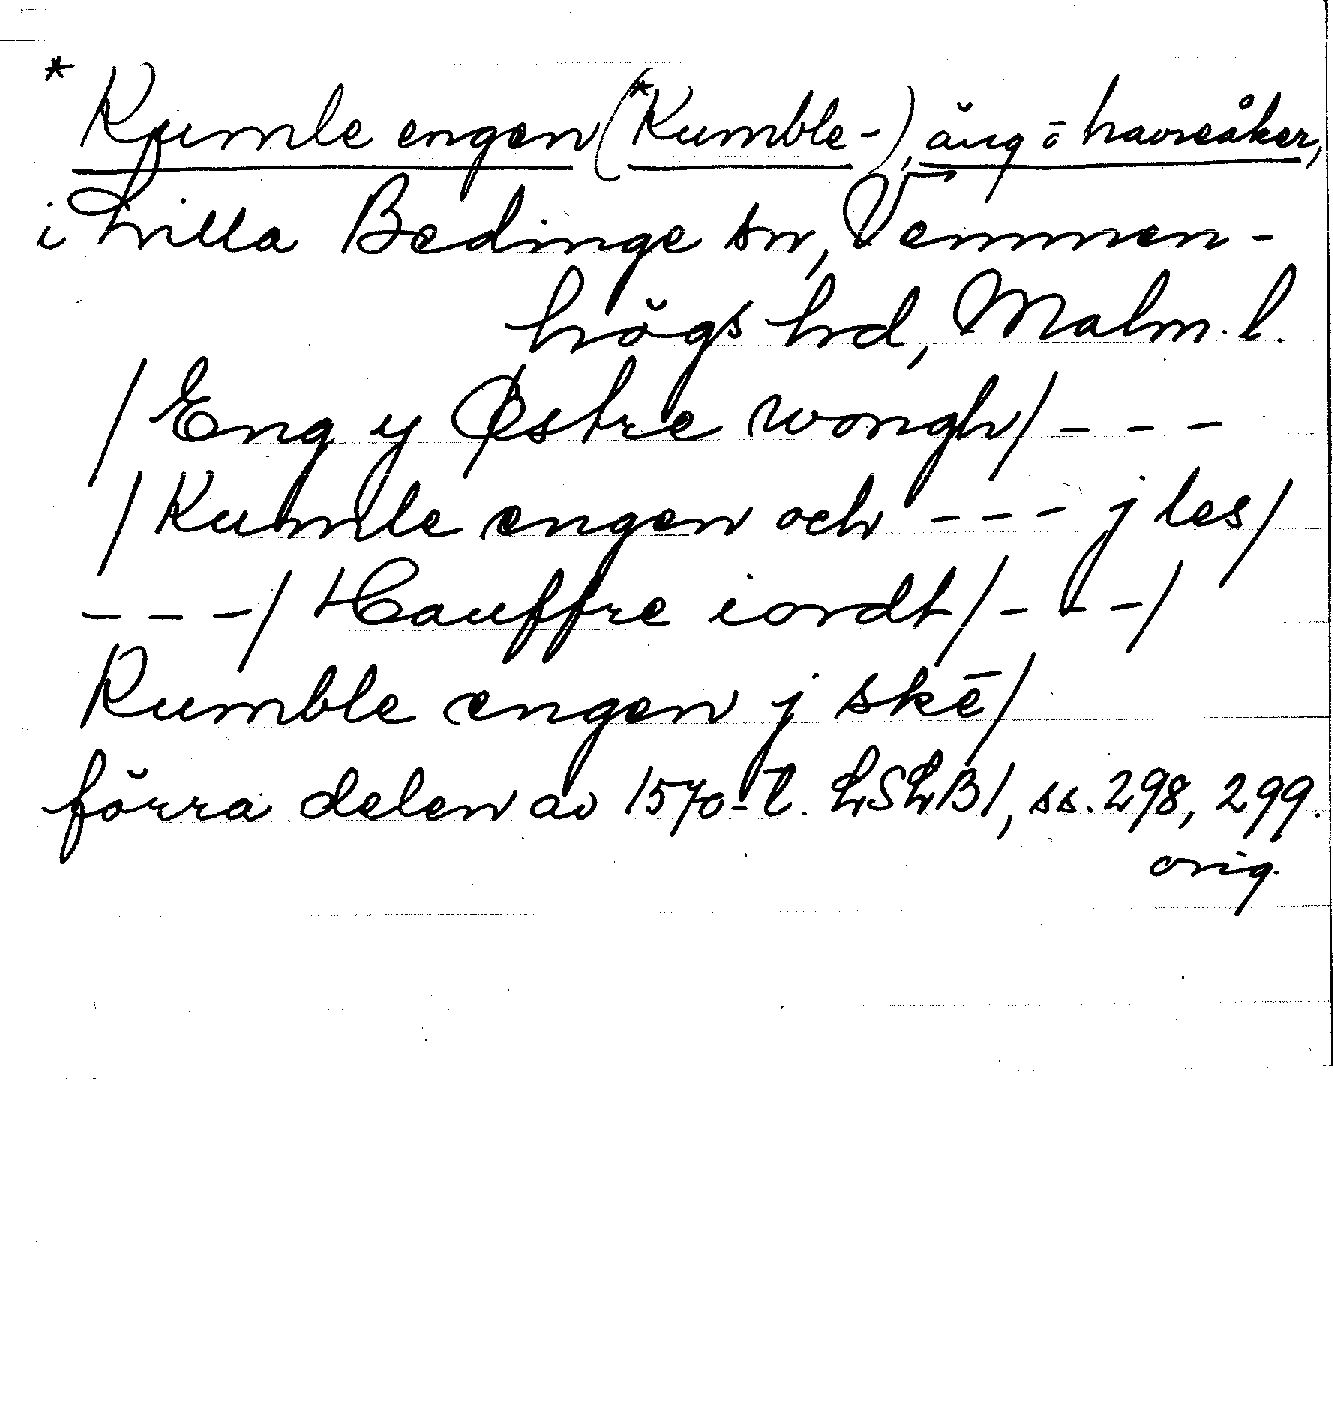 *Kumle engen (*Kumble-), äng ō havreåker,
i Lilla Bedinge sn, Vemmen-
högs hd, Malm. l.
/Eng y Østre wongh/ - - -
/Kumle engen och - - - j les/
- - -/ Hauffre iordt/- - -/
Kumble engen j skē/
förra delen av 1570-t. LSLB1, ss. 298, 299.
orig.